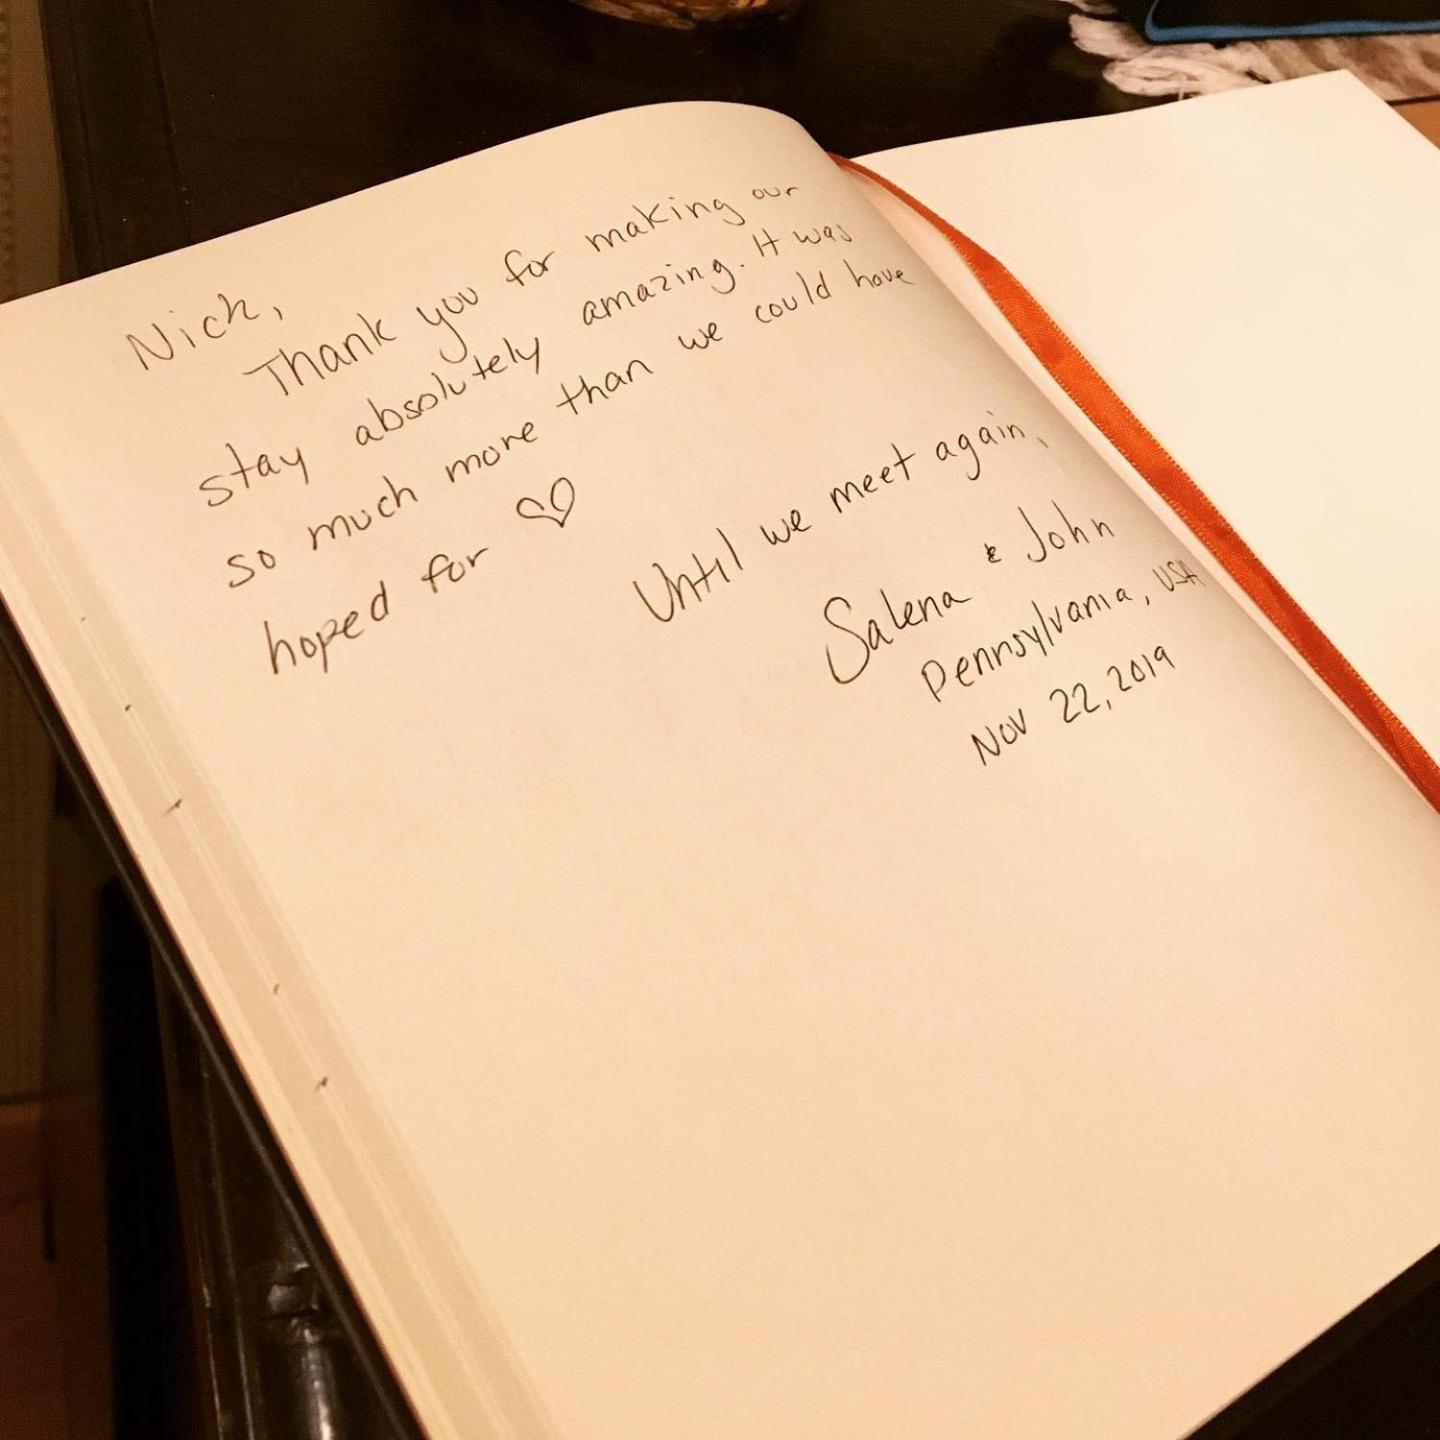 Nick,
Thank you for making our
stay absolutely amazing. It was
so much more than we could have
hoped for ♡
Until we meet again,
Salena & John
Pennsylvania, USA
Nov 22, 2019